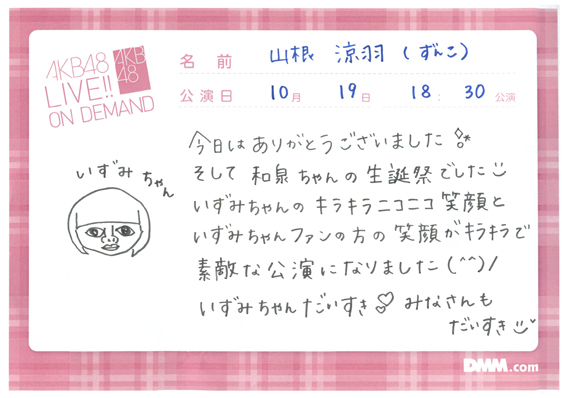 AKB48
LIVE!!
ON DEMAND
AKB
48
名前 山根 涼羽 (ずんこ)
公演日 10月 19日 18:30公演
今日はありがとうございました
そして和泉ちゃんの生誕祭でした
いずみちゃんのキラキラニコニコ笑顔と
いずみちゃんファンの方の笑顔がキラキラで
素敵な公演になりました(^^)/
いずみちゃんだいすき みなさんも
だいすき
いずみちゃん
DMM.com